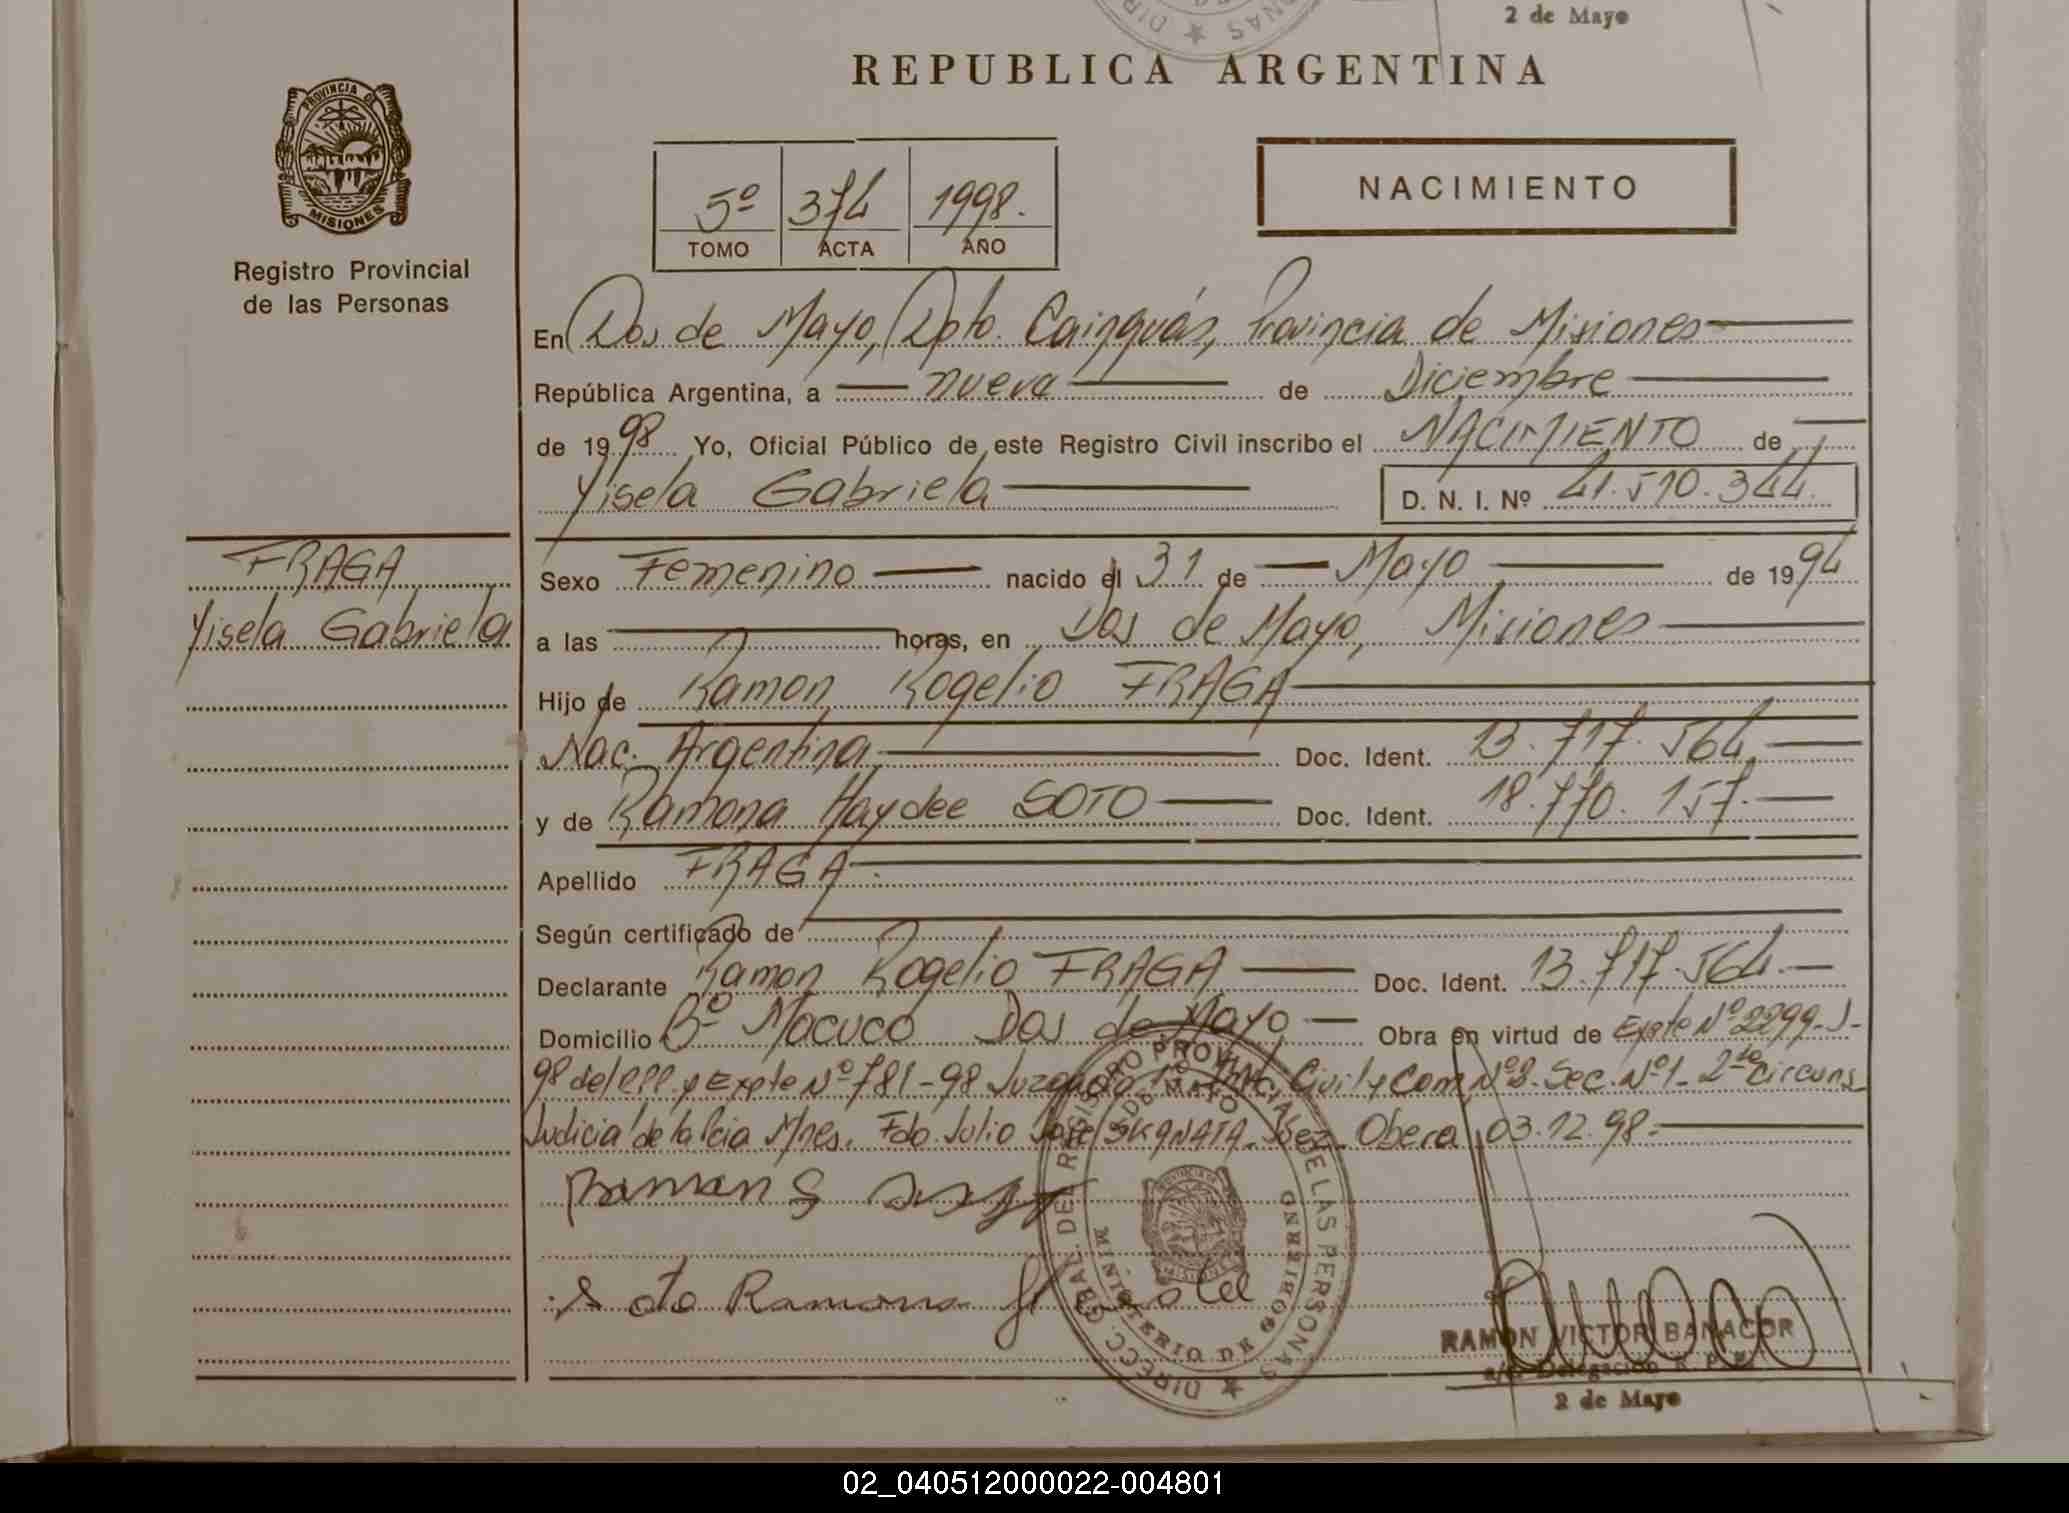 2 de Mayo
REPUBLICA ARGENTINA
PROVINCIA DE
MISIONES
Registro Provincial
de las Personas
5º 374 1998.
TOMO ACTA AÑO
NACIMIENTO
En Dos de Mayo, Dpto. Cainguás, Provincia de Misiones
República Argentina, a nueve de Diciembre
de 1998 Yo, Oficial Público de este Registro Civil inscribo el NACIMIENTO de
Yisela Gabriela D. N. I. Nº 41.510.344.
FRAGA
Yisela Gabriela
Sexo Femenino nacido el 31 de Mayo de 1994
a las horas, en Dos de Mayo, Misiones
Hijo de Ramon Rogelio FRAGA
Nac. Argentina Doc. Ident. 13.717.564
y de Ramona Haydee SOTO Doc. Ident. 18.770.157.
Apellido FRAGA
Según certificado de
Declarante Ramon Rogelio FRAGA Doc. Ident. 13.717.564.
Domicilio Bº Mocuco Dos de Mayo Obra en virtud de Expte Nº 2299-J-
98 del RPP. y Expte Nº 781-98 Juzgado 1º Civil y Com. Sec. Nº 1- 2da Circuns.
Judicial de la Pcia Mnes. Fdo. Julio José Juez. Obera 03.12.98.
Ramon
Soto Ramona
DIRECC. GRAL. DEL REGISTRO PROVINCIAL DE LAS PERSONAS
DOS DE MAYO
MINISTERIO DE GOBIERNO
RAMON VICTOR BANACOR
a/c Delegación R. P. P.
2 de Mayo
02_040512000022-004801